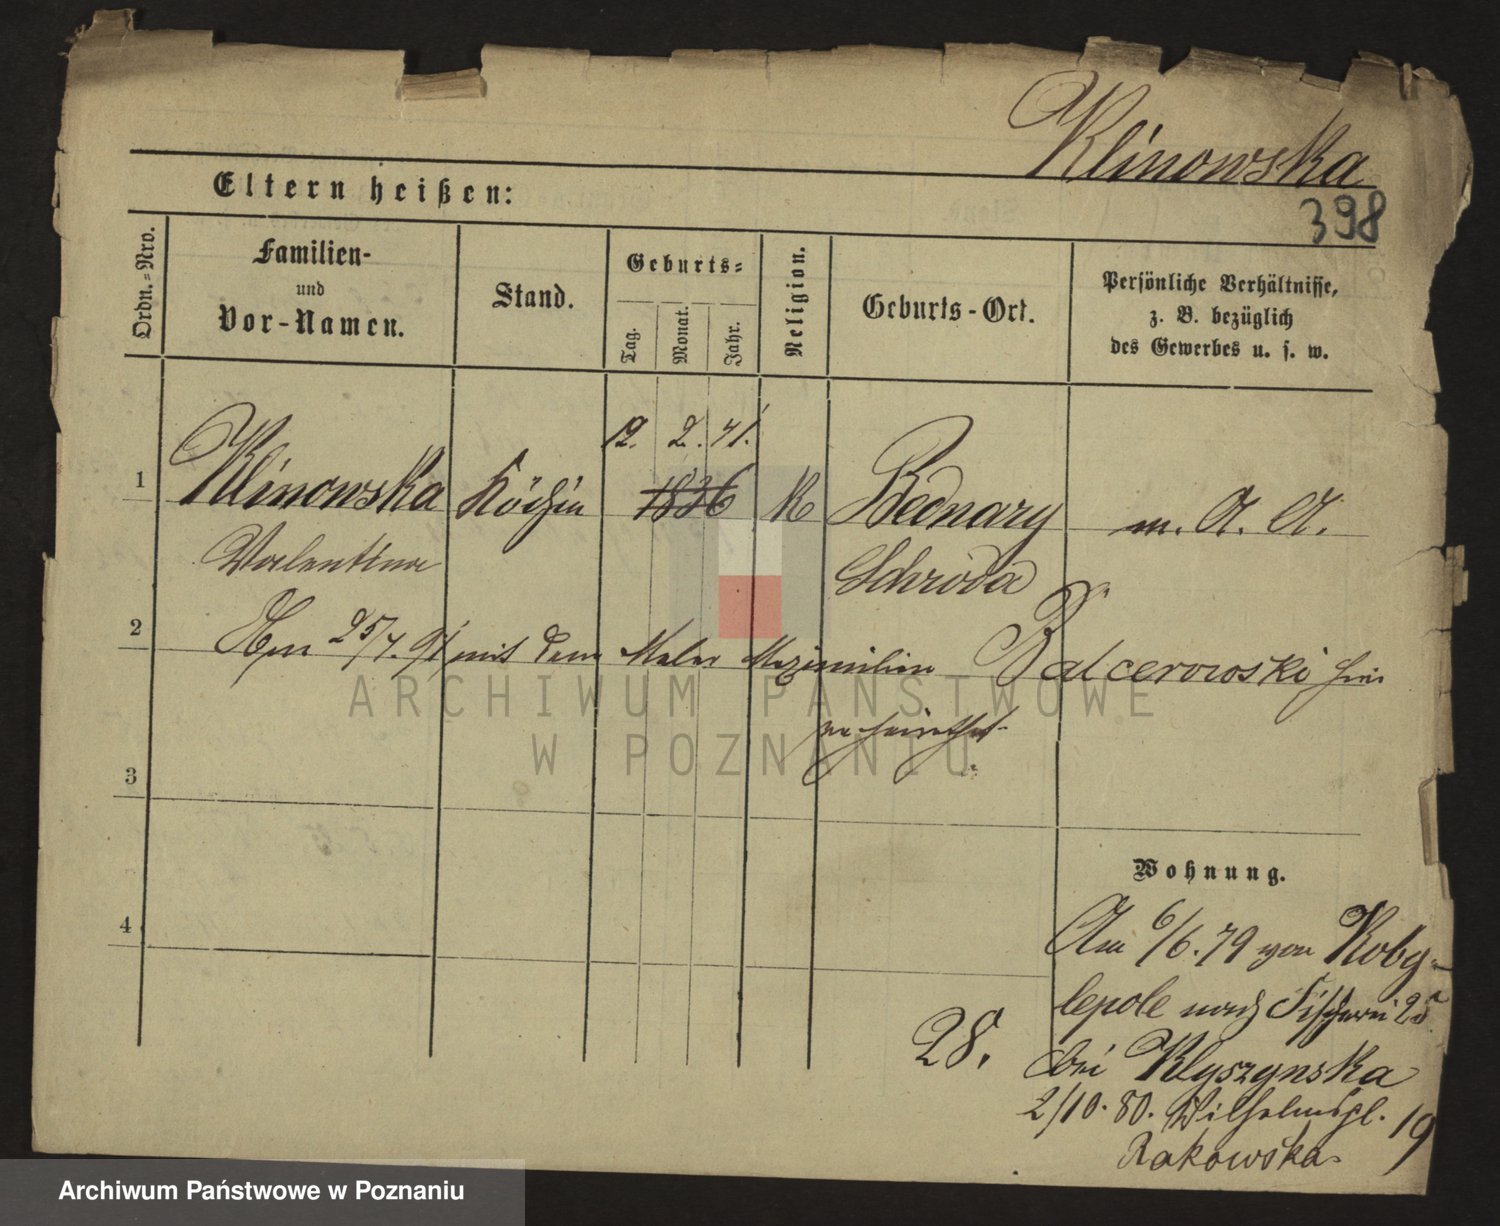 Klinowska
Eltern heißen:
398
Ordn.-Nro.
Familien-
und
Vor-Namen.
Stand.
Geburts-
Tag.
Monat.
Jahr.
Religion.
Geburts-Ort.
Persönliche Verhältnisse,
z. B. bezüglich
des Gewerbes u. s. w.
12. 2. 41.
1 Klinowska Köchin 1836 K Bednary m. A. A.
Valentina Schroda
2 Am 25/7. 91 mit dem Maler Maximilian Balcerowski hier
verheirathet.
ARCHIWUM PAŃSTWOWE
W POZNANIU
3
Wohnung.
4
Am 6/6. 79 von Koby-
lepole nach Fischerei 25
28.
bei Klyszynska
2/10. 80. Wilhelmspl. 19
Rakowska
Archiwum Państwowe w Poznaniu